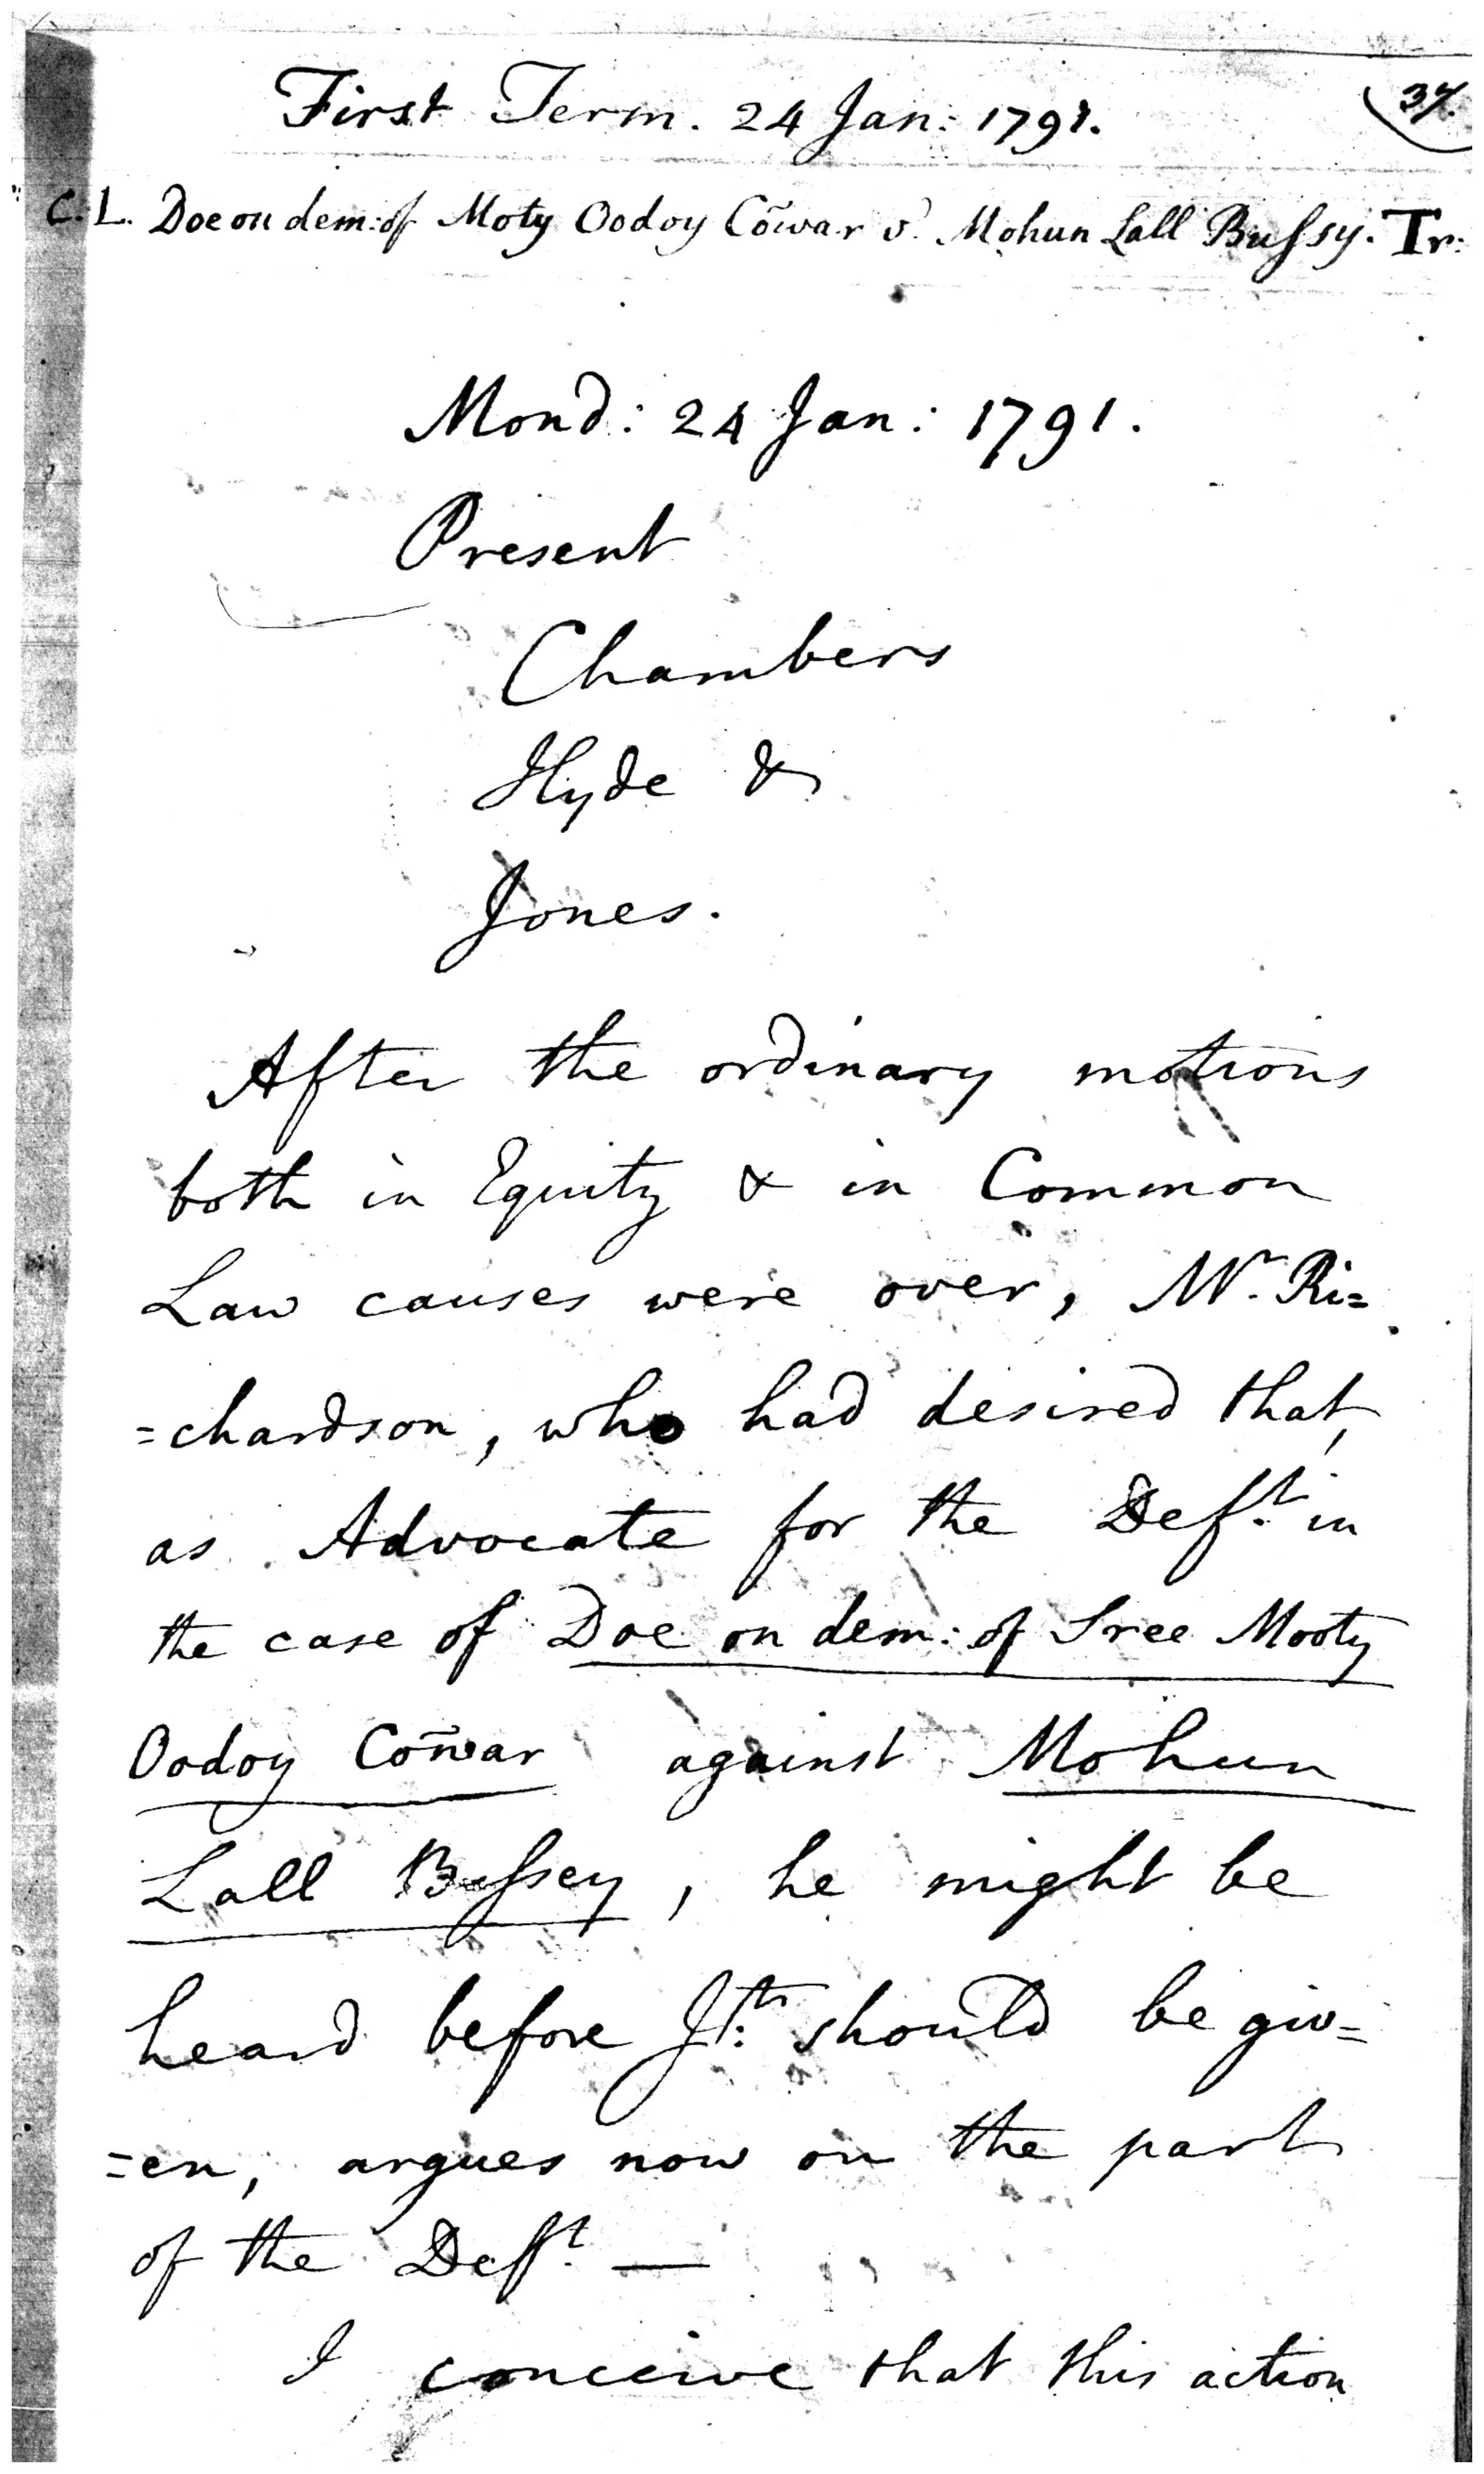 First Term. 24 Jan: 1791.
37.
C. L. Doe on dem: of Moty Oodoy Cõwar v. Mohun Lall Bussy. Tr:
Mond: 24 Jan: 1791.
Present
Chambers
Hyde &
Jones.
After the ordinary motions
both in Equity & in Common
Law causes were over, Mr. Ri=
=chardson, who had desired that,
as Advocate for the Deft. in
the case of Doe on dem: of Sree Mooty
Oodoy Cõwar against Mohun
Lall Bussey, he might be
heard before Jt: should be giv=
=en, argues now on the part
of the Deft. —
I conceive that this action